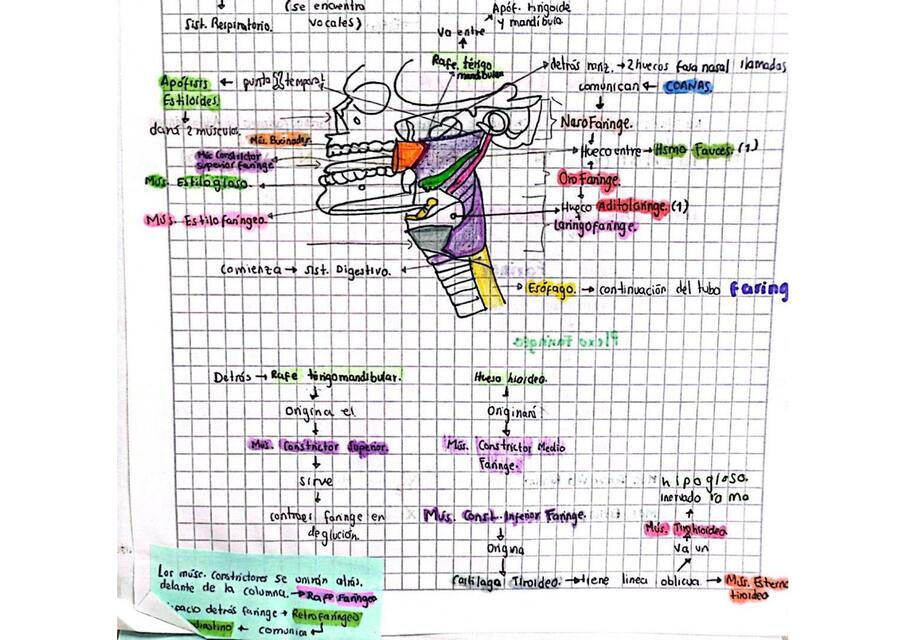 (se encuentra
vocales)
Sist. Respiratorio.
Apóf. Pterigoide
y mandíbula
Va entre
Rafe. térigo
mandibular
detrás → 2 huecos fosa nasal llamadas
comunican ← COANAS.
Apófisis ← punta temporal
Estiloides.
dará 2 músculos.
Mús. Buccinador.
Mús. Constrictor
superior faringe
Mús. Estilogloso.
Mús. Estilofaríngeo.
NasoFaringe.
Hueco entre → Itsmo Fauces. (1)
OroFaringe.
Hueco Aditolaringe. (1)
Laringofaringe.
comienza → Sist. Digestivo.
Esófago. → continuación del tubo faring
Plexo Faríngeo
Detrás → Rafe térigomandibular.
Origina el
Mús. Constrictor Superior.
sirve
contraer faringe en
deglución.
Hueso hioideo.
Originará
Mús. Constrictor Medio
Faringe.
Mús. Const. Inferior Faringe.
Origina
Cartílago Tiroideo. → tiene línea oblicua → Mús. Esterno
tiroideo
Va un
Mús. Tirohioideo
inervado rama
hipogloso.
Los músc. constrictores se unirán atrás,
delante de la columna. → Rafe Faríngeo
espacio detrás faringe → Retrofaríngeo
← comunica